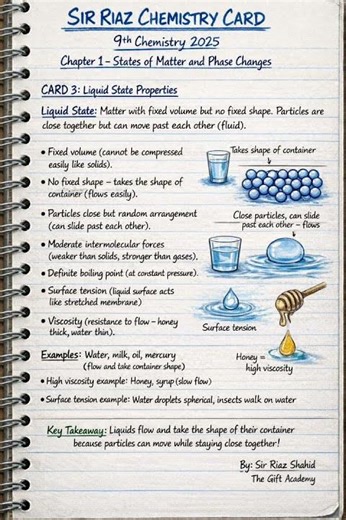 SIR RIAZ CHEMISTRY CARD
9th Chemistry 2025
Chapter 1 – States of Matter and Phase Changes
CARD 3: Liquid State Properties
Liquid State: Matter with fixed volume but no fixed shape. Particles are
close together but can move past each other (fluid).
• Fixed volume (cannot be compressed
easily like solids).
• No fixed shape – takes the shape of
container (flows easily).
• Particles close but random arrangement
(can slide past each other).
• Moderate intermolecular forces
(weaker than solids, stronger than gases).
• Definite boiling point (at constant pressure).
• Surface tension (liquid surface acts
like stretched membrane)
• Viscosity (resistance to flow – honey
thick, water thin).
Takes shape of container
Close particles, can slide
past each other – flows
Surface tension
Honey =
high viscosity
Examples: Water, milk, oil, mercury
(flow and take container shape)
• High viscosity example: Honey, syrup (slow flow)
• Surface tension example: Water droplets spherical, insects walk on water
Key Takeaway: Liquids flow and take the shape of their container
because particles can move while staying close together!
By: Sir Riaz Shahid
The Gift Academy